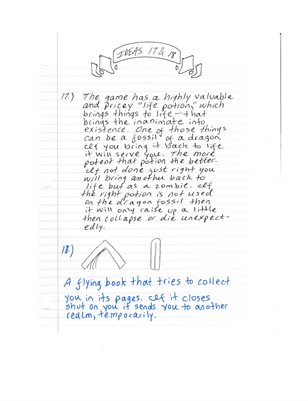 IDEAS 17 & 18
17.) The game has a highly valuable
and pricey "life potion," which
brings things to life—that
brings the inanimate into
existence. One of those things
can be a fossil of a dragon.
If you bring it back to life
it will serve you. The more
potent that potion the better.
If not done just right you
will bring another back to
life but as a zombie. If
the right potion is not used
on the dragon fossil then
it will only raise up a little
then collapse or die unexpect-
edly.
18.)
A flying book that tries to collect
you in its pages. If it closes
shut on you it sends you to another
realm, temporarily.